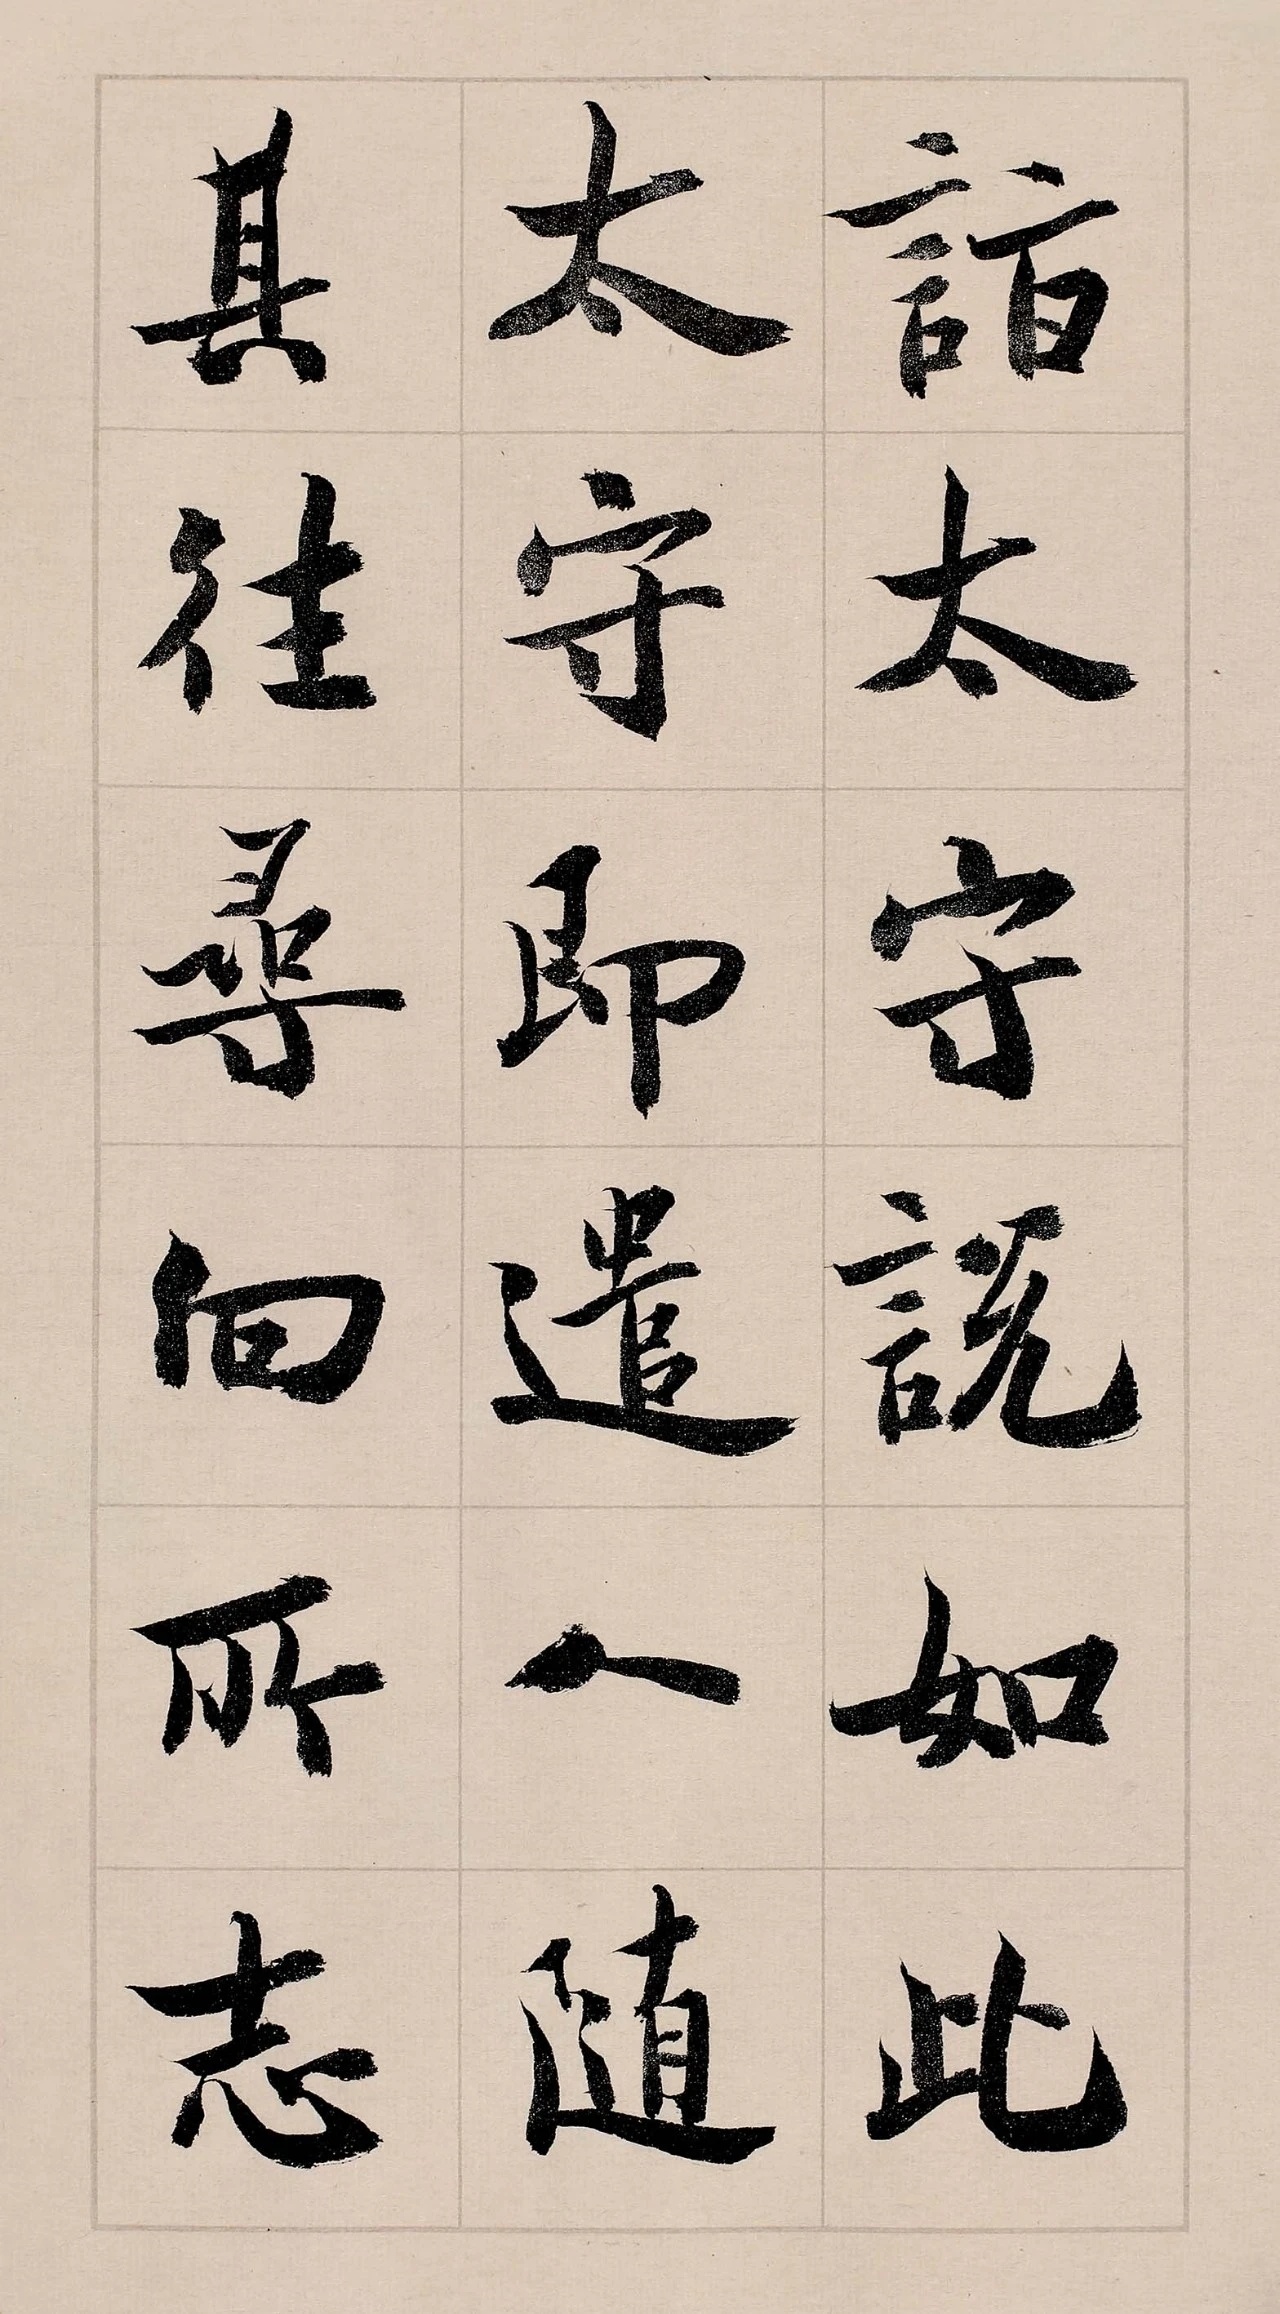 詣太守說如此
太守即遣人隨
其往尋向所志